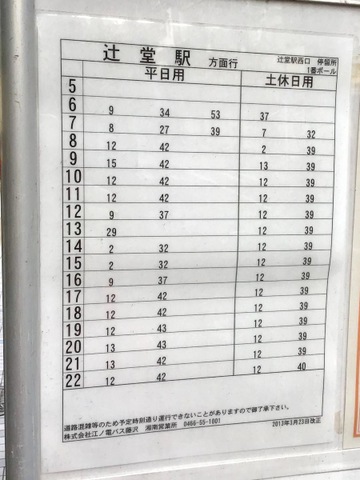 辻堂駅 方面行
辻堂駅西口 停留所
1番ポール
平日用 土休日用
5
6 9 34 53 37
7 8 27 39 7 32
8 12 42 2 39
9 15 42 13 39
10 12 42 12 39
11 12 42 12 39
12 9 37 12 39
13 29 12 39
14 2 32 12 39
15 2 32 12 39
16 9 37 12 39
17 12 42 12 39
18 12 42 12 39
19 12 43 12 39
20 13 43 12 39
21 13 42 12 39
22 12 42 12 40
道路混雑等のため予定時刻通り運行できないことがありますので御了承下さい。
株式会社江ノ電バス藤沢 湘南営業所 0466-55-1001 2013年3月23日改正